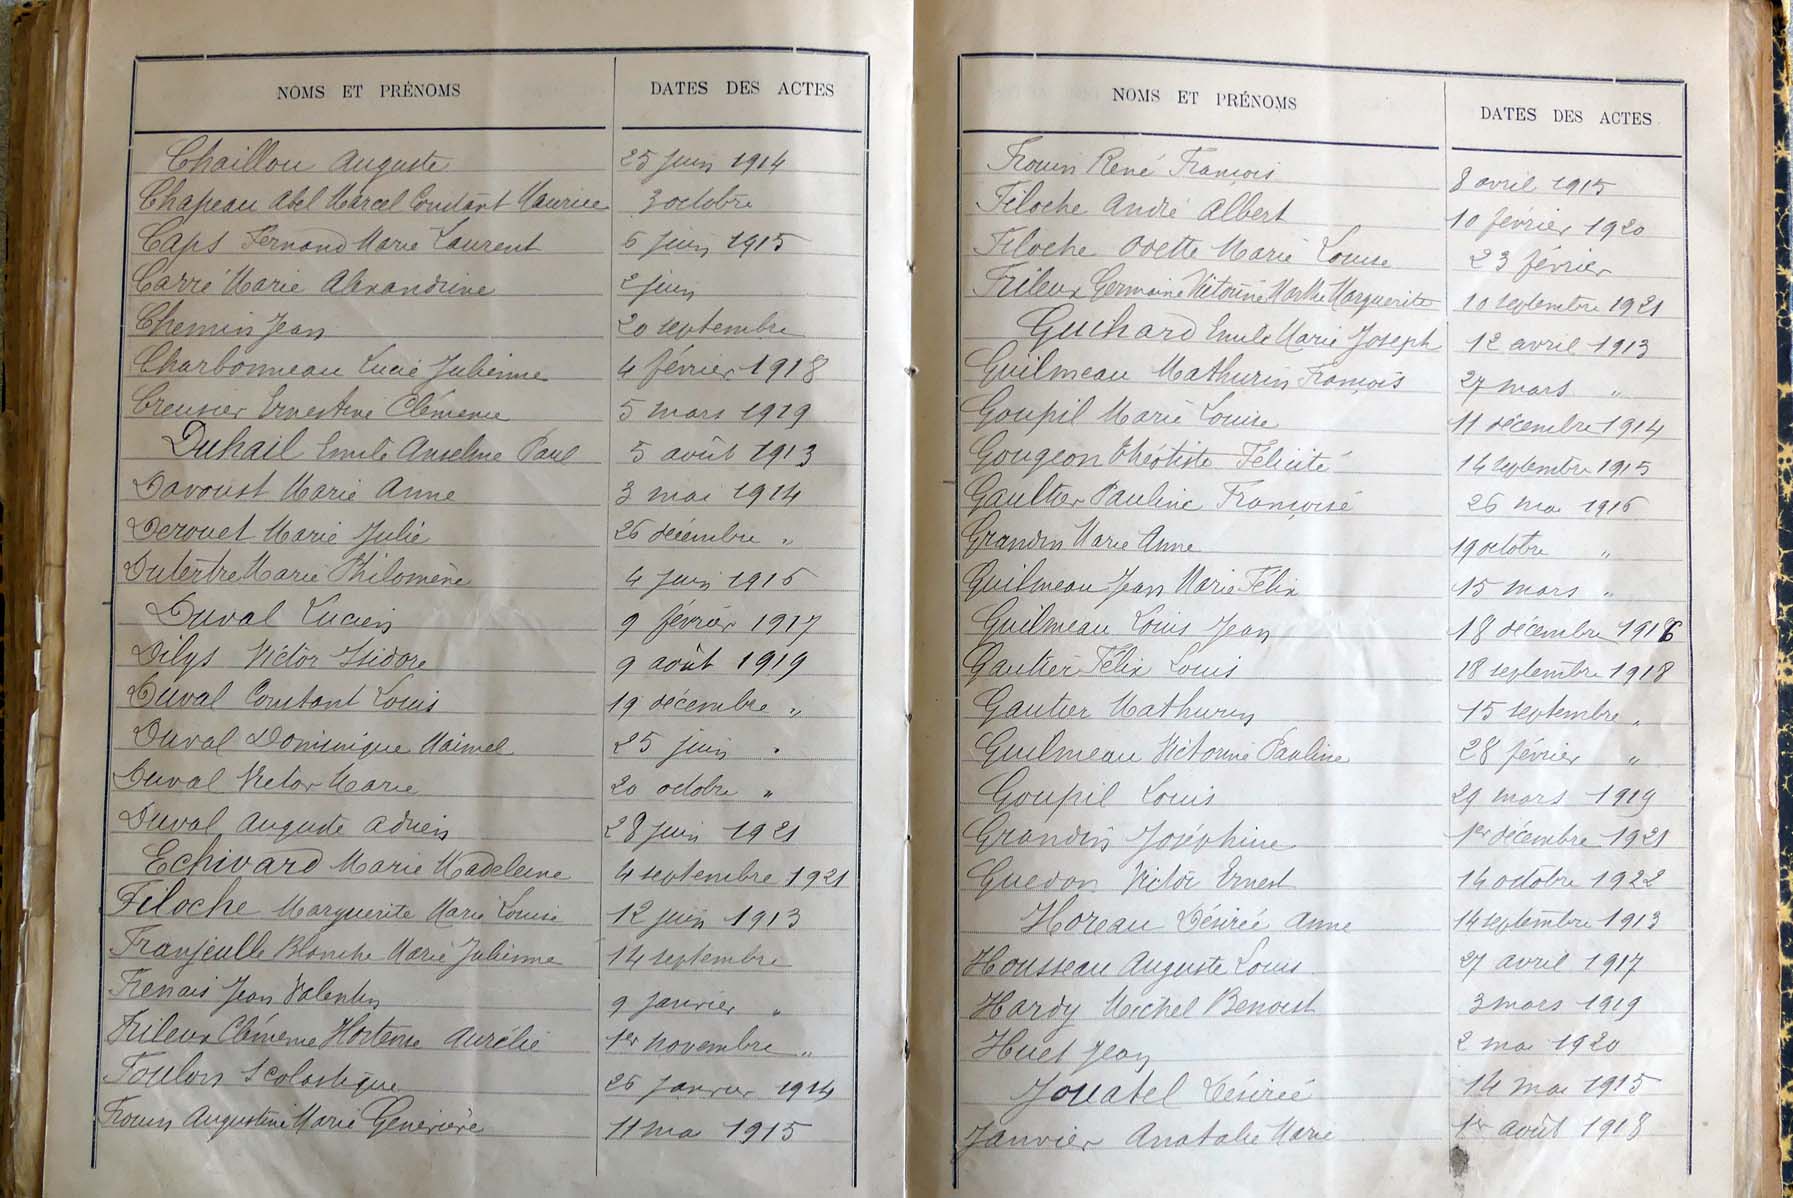 NOMS ET PRÉNOMS DATES DES ACTES
Chaillou Auguste 25 juin 1914
Chapeau Abel Marcel Constant Maurice 3 octobre
Caps Fernand Marie Laurent 6 juin 1915
Carré Marie Alexandrine 2 juin
Chemin Jean 20 septembre
Charbonneau Lucie Julienne 4 février 1918
Creusier Ernestine Clémence 5 mars 1919
Duhail Emile Anselme Paul 5 août 1913
Davoust Marie Anne 3 mai 1914
Derouet Marie Julie 26 décembre "
Dutertre Marie Philomène 4 juin 1915
Duval Lucien 9 février 1917
Dilys Victor Isidore 9 août 1919
Duval Constant Louis 19 décembre "
Duval Dominique 25 juin "
Duval Victor Marie 20 octobre "
Duval Auguste Adrien 28 juin 1921
Echivard Marie Madeleine 4 septembre 1921
Filoche Marguerite Marie Louise 12 juin 1913
Franjeulle Blanche Marie Julienne 14 septembre
Frenais Jean Valentin 9 janvier "
Frileux Clémence Hortense Aurélie 1er novembre "
Foulon Scolastique 26 janvier 1914
Frouin Augustine Marie Geneviève 11 mai 1915
NOMS ET PRÉNOMS DATES DES ACTES
Frouin René François 8 avril 1915
Filoche André Albert 10 février 1920
Filoche Odette Marie Louise 23 février
Frileux Germaine Victorine Marthe Marguerite 10 septembre 1921
Guihard Emile Marie Joseph 12 avril 1913
Guilmeau Mathurin François 27 mars "
Goupil Marie Louise 11 décembre 1914
Gougeon Théotiste Félicité 14 septembre 1915
Gaultier Pauline Françoise 26 mai 1916
Grandin Marie Anne 19 octobre "
Guilmeau Jean Marie Félix 15 mars "
Guilmeau Louis Jean 18 décembre 1916
Gautier Félix Louis 18 septembre 1918
Gautier Mathurin 15 septembre "
Guilmeau Victorine Pauline 28 février "
Goupil Louis 29 mars 1919
Grandin Joséphine 1er décembre 1921
Guedon Victor Ernest 14 octobre 1922
Horeau Désirée Anne 14 septembre 1913
Housseau Auguste Louis 27 avril 1917
Hardy Michel Benoist 3 mars 1919
Huet Jean 2 mai 1920
Jouatel Désirée 14 mai 1915
Janvier Anatalie Marie 1er août 1918